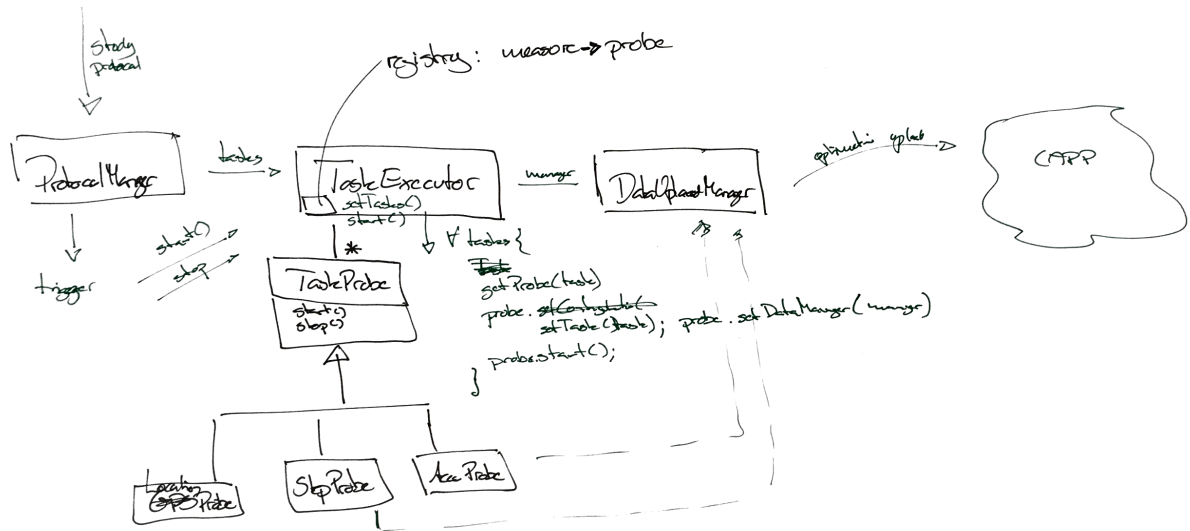 study
protocol
registry: measore → probe
ProtocolManger
tasks
TaskExecutor
setTasks()
start()
manager
DataUploadManager
upload
CAPP
trigger
start()
stop
*
∀ tasks {
getProbe(task)
probe.
setTask(task); probe.setDataManager(manager)
probe.start();
}
TaskProbe
start()
stop()
Location
Probe
StepProbe
AccProbe